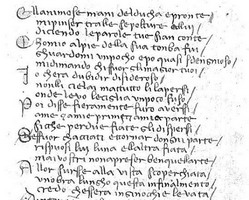 Ellanimose man del ducha e pronte
mi pinser tra le sepolture allui
dicendo le parole tue sian conte
Chomio alpie della sua tonba fui
guardommi un pocho epo quasi sdengnoso
mi dimando chi fuor li maggior tui
Io chera dubidir disideroso
nolli celai ma tutto li lapersi
onde levo le ciglia un poco
Poi disse fieramente furo aversi
ame e amie primi e amie parte
Siche per due fiate gli dispersi
Se fuor chacciati e tornar dongni parte
rispuosi luna e laltra fiata
ma i vostri non apreser ben quellarte
Allor surse alla vista scoperchiata
unobra lungho questa infinalmento
credo chessera in ginochie levata